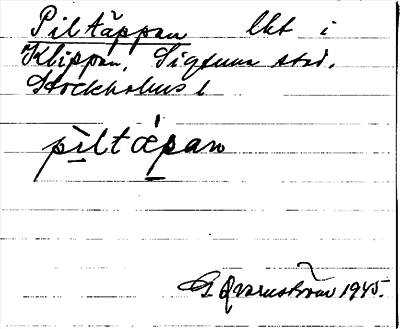 Piltäppan lht i
Klippan, Sigtuna stad,
Stockholms l
piltæpan
G Qvarnström 1945.